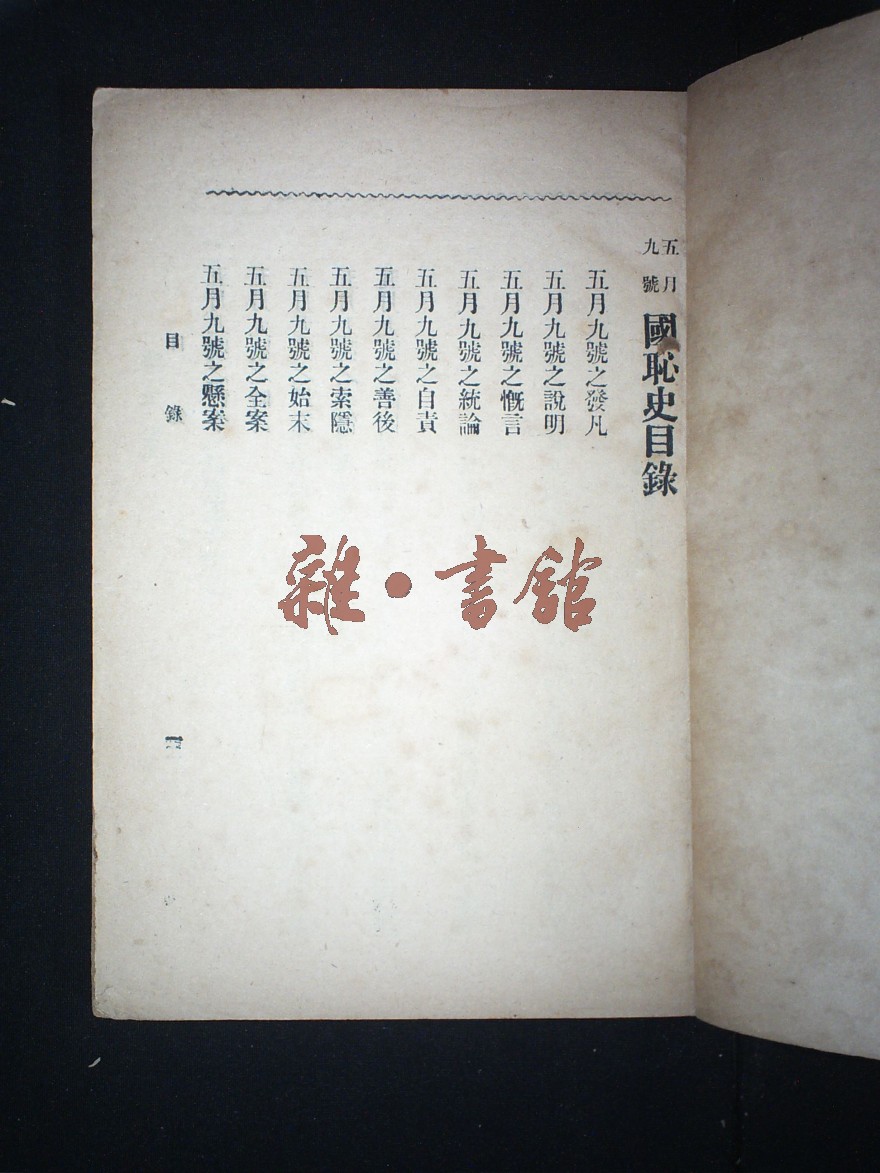 五月九號 國恥史目錄
五月九號之發凡
五月九號之說明
五月九號之慨言
五月九號之統論
五月九號之自責
五月九號之善後
五月九號之索隱
五月九號之始末
五月九號之全案
五月九號之懸案
目錄
雜·書館